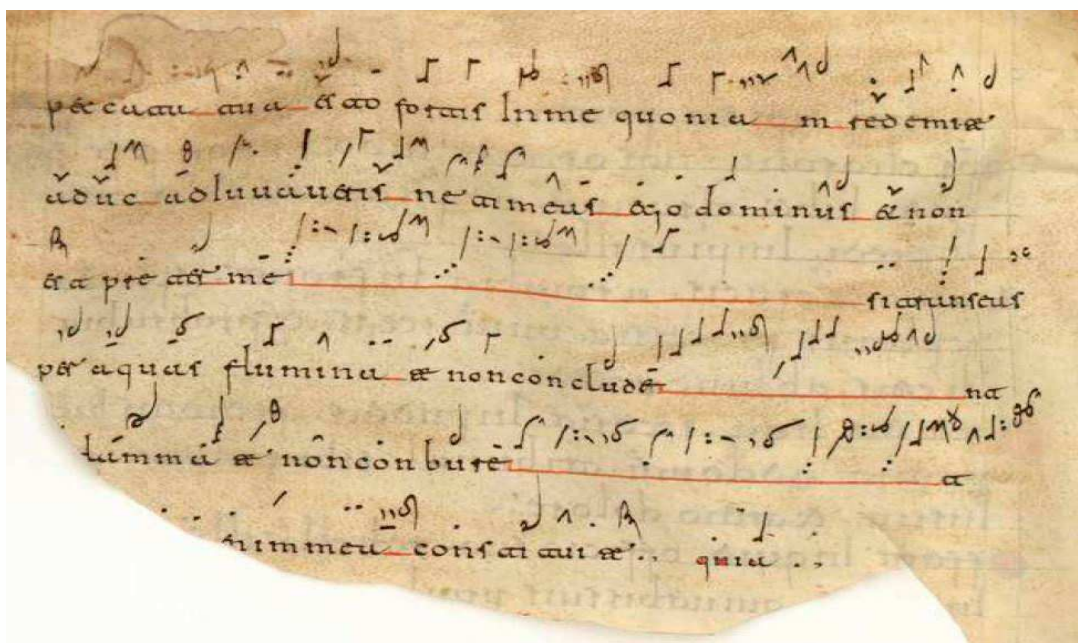 peccata tua esto fortis In me quonia m redemi te
aduc adIuuaueris ne timeas ego dominus et non
est preter me si transeas
per aquas flumina te non conclude nt
lamma te non conbure t
nimmea constitui te quia